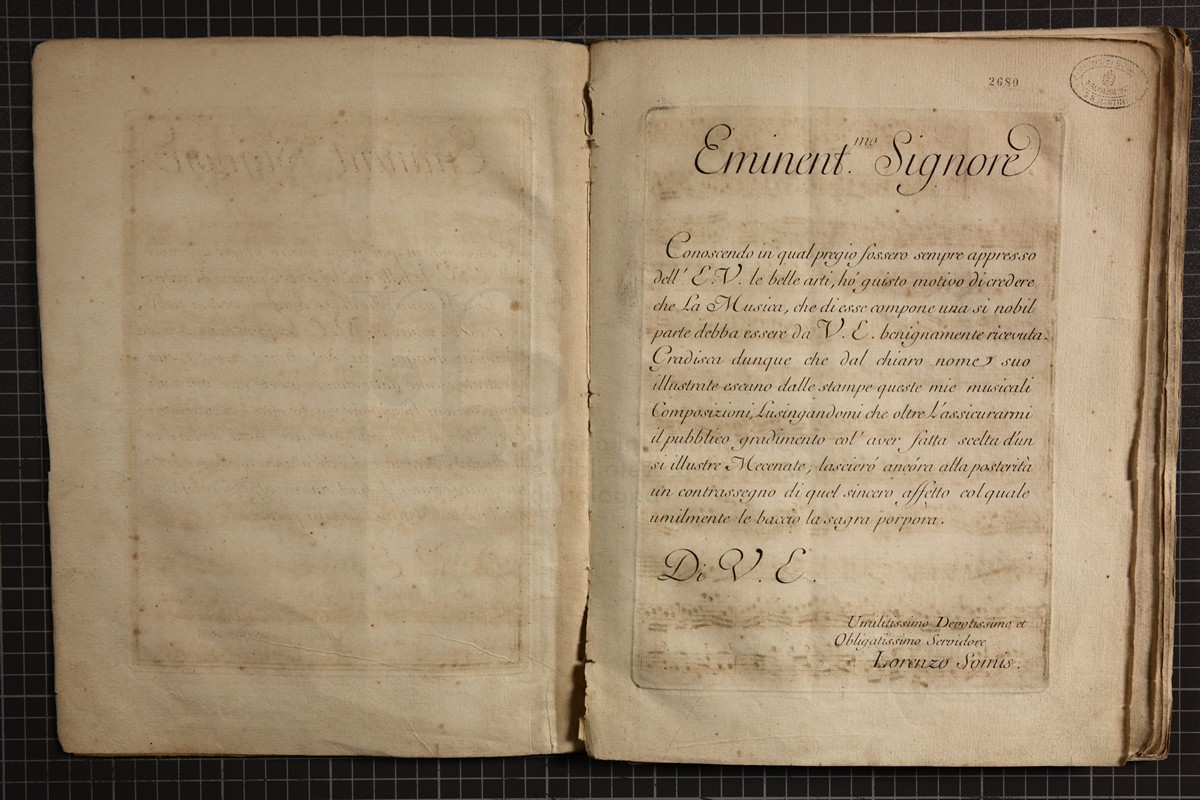 2680
Eminent.mo Signore
Conoscendo in qual pregio fossero sempre appresso
dell' E.V. le belle arti, hó guisto motivo di credere
che La Musica, che di esse compone una si nobil
parte debba essere da V. E. benignamente ricevuta.
Gradisca dunque che dal chiaro nome suo
illustrate escano dalle stampe queste mie musicali
Composizioni, Lusingandomi che oltre l'assicurarmi
il pubblico gradimento col' aver fatta scelta d'un
si illustre Mecenate, lascieró ancóra alla posterità
un contrassegno di quel sincero affetto col quale
umilmente le baccio la sagra porpora.
Di V. E.
Umilitissimo Devotissimo et
Obligatissimo Servidore
Lorenzo Somis.